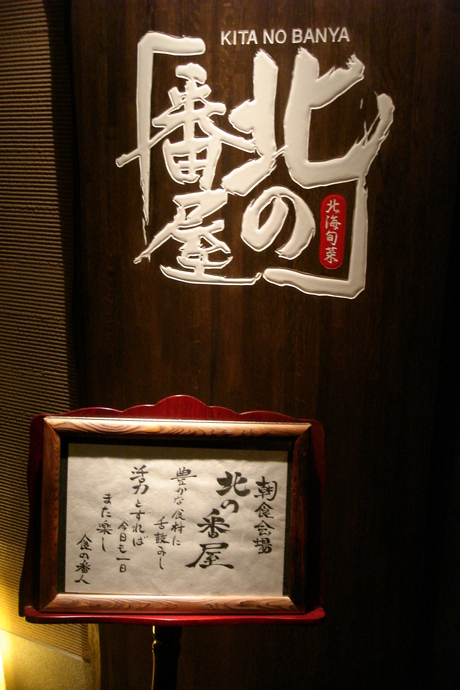 KITA NO BANYA
北の
番屋
北海旬菜
朝食会場
北の番屋
豊かな食材に
舌鼓みし
活力とすれば
今日も一日
また楽し
食の番人